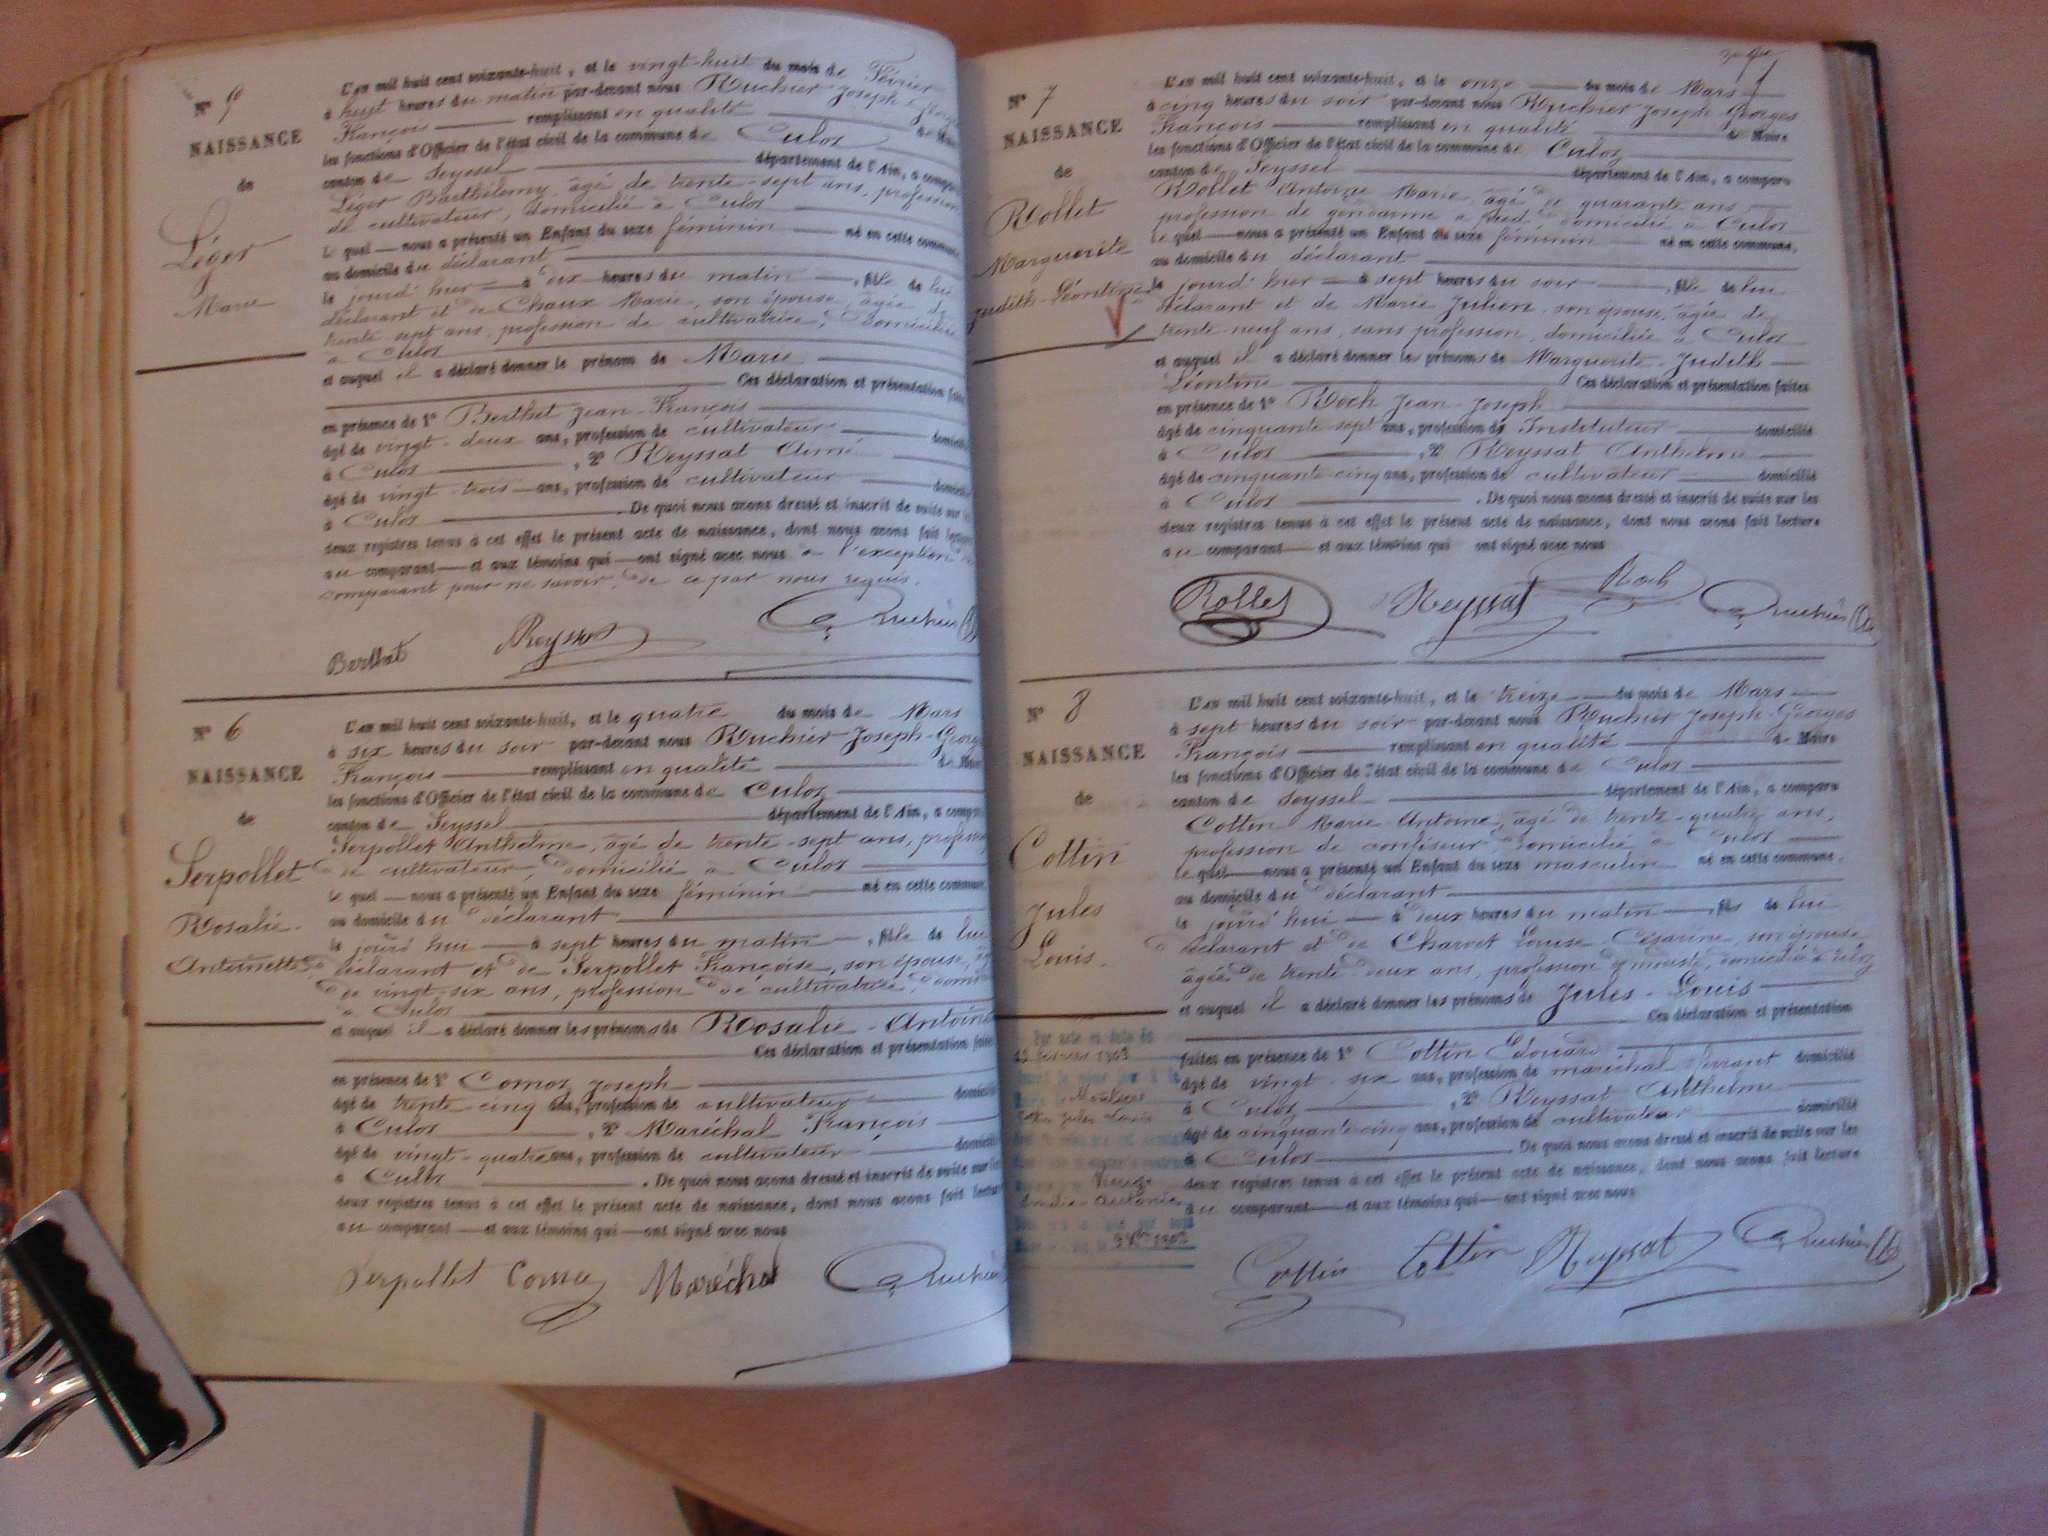 N° 5
NAISSANCE
de
Léger
Marie
L'an mil huit cent soixante-huit, et le vingt-huit du mois de Février
à huit heures du matin par-devant nous Ruchier Joseph-Georges
François remplissant en qualité de Maire
les fonctions d'Officier de l'état civil de la commune de Culoz
canton de Seyssel département de l'Ain, a comparu
Léger Barthélemy, âgé de trente-sept ans, profession
de cultivateur, domicilié à Culoz
Le quel nous a présenté un Enfant du sexe féminin né en cette commune,
au domicile du déclarant
le jourd'hier à dix heures du matin, fille de lui
déclarant et de Chaux Marie, son épouse, âgée de
trente sept ans, profession de cultivatrice, domiciliée
à Culoz
et auquel il a déclaré donner le prénom de Marie
Ces déclaration et présentation faites
en présence de 1° Berthet Jean-François
âgé de vingt-deux ans, profession de cultivateur domicilié
à Culoz, 2° Reyssat Aimé
âgé de vingt-trois ans, profession de cultivateur domicilié
à Culoz. De quoi nous avons dressé et inscrit de suite sur les
deux registres tenus à cet effet le présent acte de naissance, dont nous avons fait lecture
au comparant et aux témoins qui ont signé avec nous à l'exception du
comparant pour ne savoir, de ce par nous requis.
Berthet Reyssat Ruchier
N° 6
NAISSANCE
de
Serpollet
Rosalie
Antoinette
L'an mil huit cent soixante-huit, et le quatre du mois de Mars
à six heures du soir par-devant nous Ruchier Joseph-Georges
François remplissant en qualité de Maire
les fonctions d'Officier de l'état civil de la commune de Culoz
canton de Seyssel département de l'Ain, a comparu
Serpollet Anthelme, âgé de trente-sept ans, profession
de cultivateur, domicilié à Culoz
Le quel nous a présenté un Enfant du sexe féminin né en cette commune,
au domicile du déclarant
le jourd'hui à sept heures du matin, fille de lui
déclarant et de Serpollet Françoise, son épouse, âgée
de vingt-six ans, profession de cultivatrice, domiciliée
à Culoz
et auquel il a déclaré donner les prénoms de Rosalie-Antoinette
Ces déclaration et présentation faites
en présence de 1° Comoz Joseph domicilié
âgé de trente-cinq ans, profession de cultivateur
à Culoz, 2° Maréchal François
âgé de vingt-quatre ans, profession de cultivateur domicilié
à Culoz. De quoi nous avons dressé et inscrit de suite sur les
deux registres tenus à cet effet le présent acte de naissance, dont nous avons fait lecture
au comparant et aux témoins qui ont signé avec nous
Serpollet Comoz Maréchal Ruchier
N° 7
NAISSANCE
de
Rollet
Marguerite
Judith-Léontine
L'an mil huit cent soixante-huit, et le onze du mois de Mars
à cinq heures du soir par-devant nous Ruchier Joseph-Georges
François remplissant en qualité de Maire
les fonctions d'Officier de l'état civil de la commune de Culoz
canton de Seyssel département de l'Ain, a comparu
Rollet Antoine Marie, âgé de quarante ans,
profession de gendarme à pied, domicilié à Culoz
Le quel nous a présenté un Enfant du sexe féminin né en cette commune,
au domicile du déclarant
le jourd'hier à sept heures du soir, fille de lui
déclarant et de Marie Julien, son épouse, âgée de
trente-neuf ans, sans profession, domiciliée à Culoz
et auquel il a déclaré donner les prénoms de Marguerite-Judith-
Léontine Ces déclaration et présentation faites
en présence de 1° Roch Jean-Joseph
âgé de cinquante sept ans, profession d'Instituteur domicilié
à Culoz, 2° Reyssat Anthelme
âgé de cinquante cinq ans, profession de cultivateur domicilié
à Culoz. De quoi nous avons dressé et inscrit de suite sur les
deux registres tenus à cet effet le présent acte de naissance, dont nous avons fait lecture
au comparant et aux témoins qui ont signé avec nous
Rollet Reyssat Roch Ruchier
N° 8
NAISSANCE
de
Cottin
Jules
Louis.
L'an mil huit cent soixante-huit, et le treize du mois de Mars
à sept heures du soir par-devant nous Ruchier Joseph-Georges
François remplissant en qualité de Maire
les fonctions d'Officier de l'état civil de la commune de Culoz
canton de Seyssel département de l'Ain, a comparu
Cottin Marie-Antoine, âgé de trente-quatre ans,
profession de confiseur, domicilié à Culoz
Le quel nous a présenté un Enfant du sexe masculin né en cette commune,
au domicile du déclarant
le jourd'hui à deux heures du matin, fils de lui
déclarant et de Charvet Louise-Césarine, son épouse
âgée de trente deux ans, profession de modiste, domiciliée à Culoz
et auquel il a déclaré donner les prénoms de Jules-Louis
Ces déclaration et présentation
faites en présence de 1° Cottin Edouard
âgé de vingt-six ans, profession de maréchal ferrant domicilié
à Culoz, 2° Reyssat Anthelme
âgé de cinquante cinq ans, profession de cultivateur domicilié
à Culoz. De quoi nous avons dressé et inscrit de suite sur les
deux registres tenus à cet effet le présent acte de naissance, dont nous avons fait lecture
au comparant et aux témoins qui ont signé avec nous
Par acte en date du
1903
Cottin Jules Louis
Cottin Cottin Reyssat Ruchier